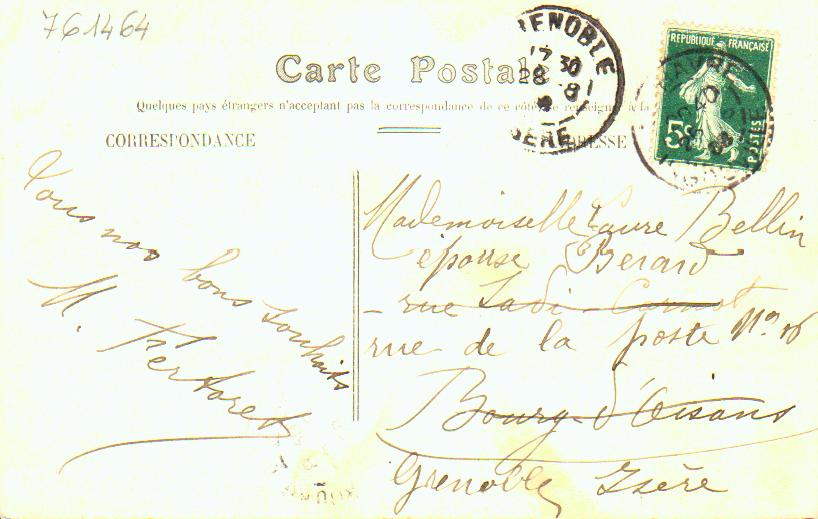 761464
Carte Postale
Quelques pays étrangers n'acceptant pas la correspondance de ce côté, se renseigner à la
CORRESPONDANCE
ADRESSE
GRENOBLE
17 30
28 -8
ISÈRE
REPUBLIQUE FRANÇAISE
5c
POSTES
Tous nos bons souhaits
M.
Mademoiselle Laure Bellin
épouse Berard
rue Sadi Carnot
rue de la poste No 16
Bourg d'Oisans
Grenoble Isère